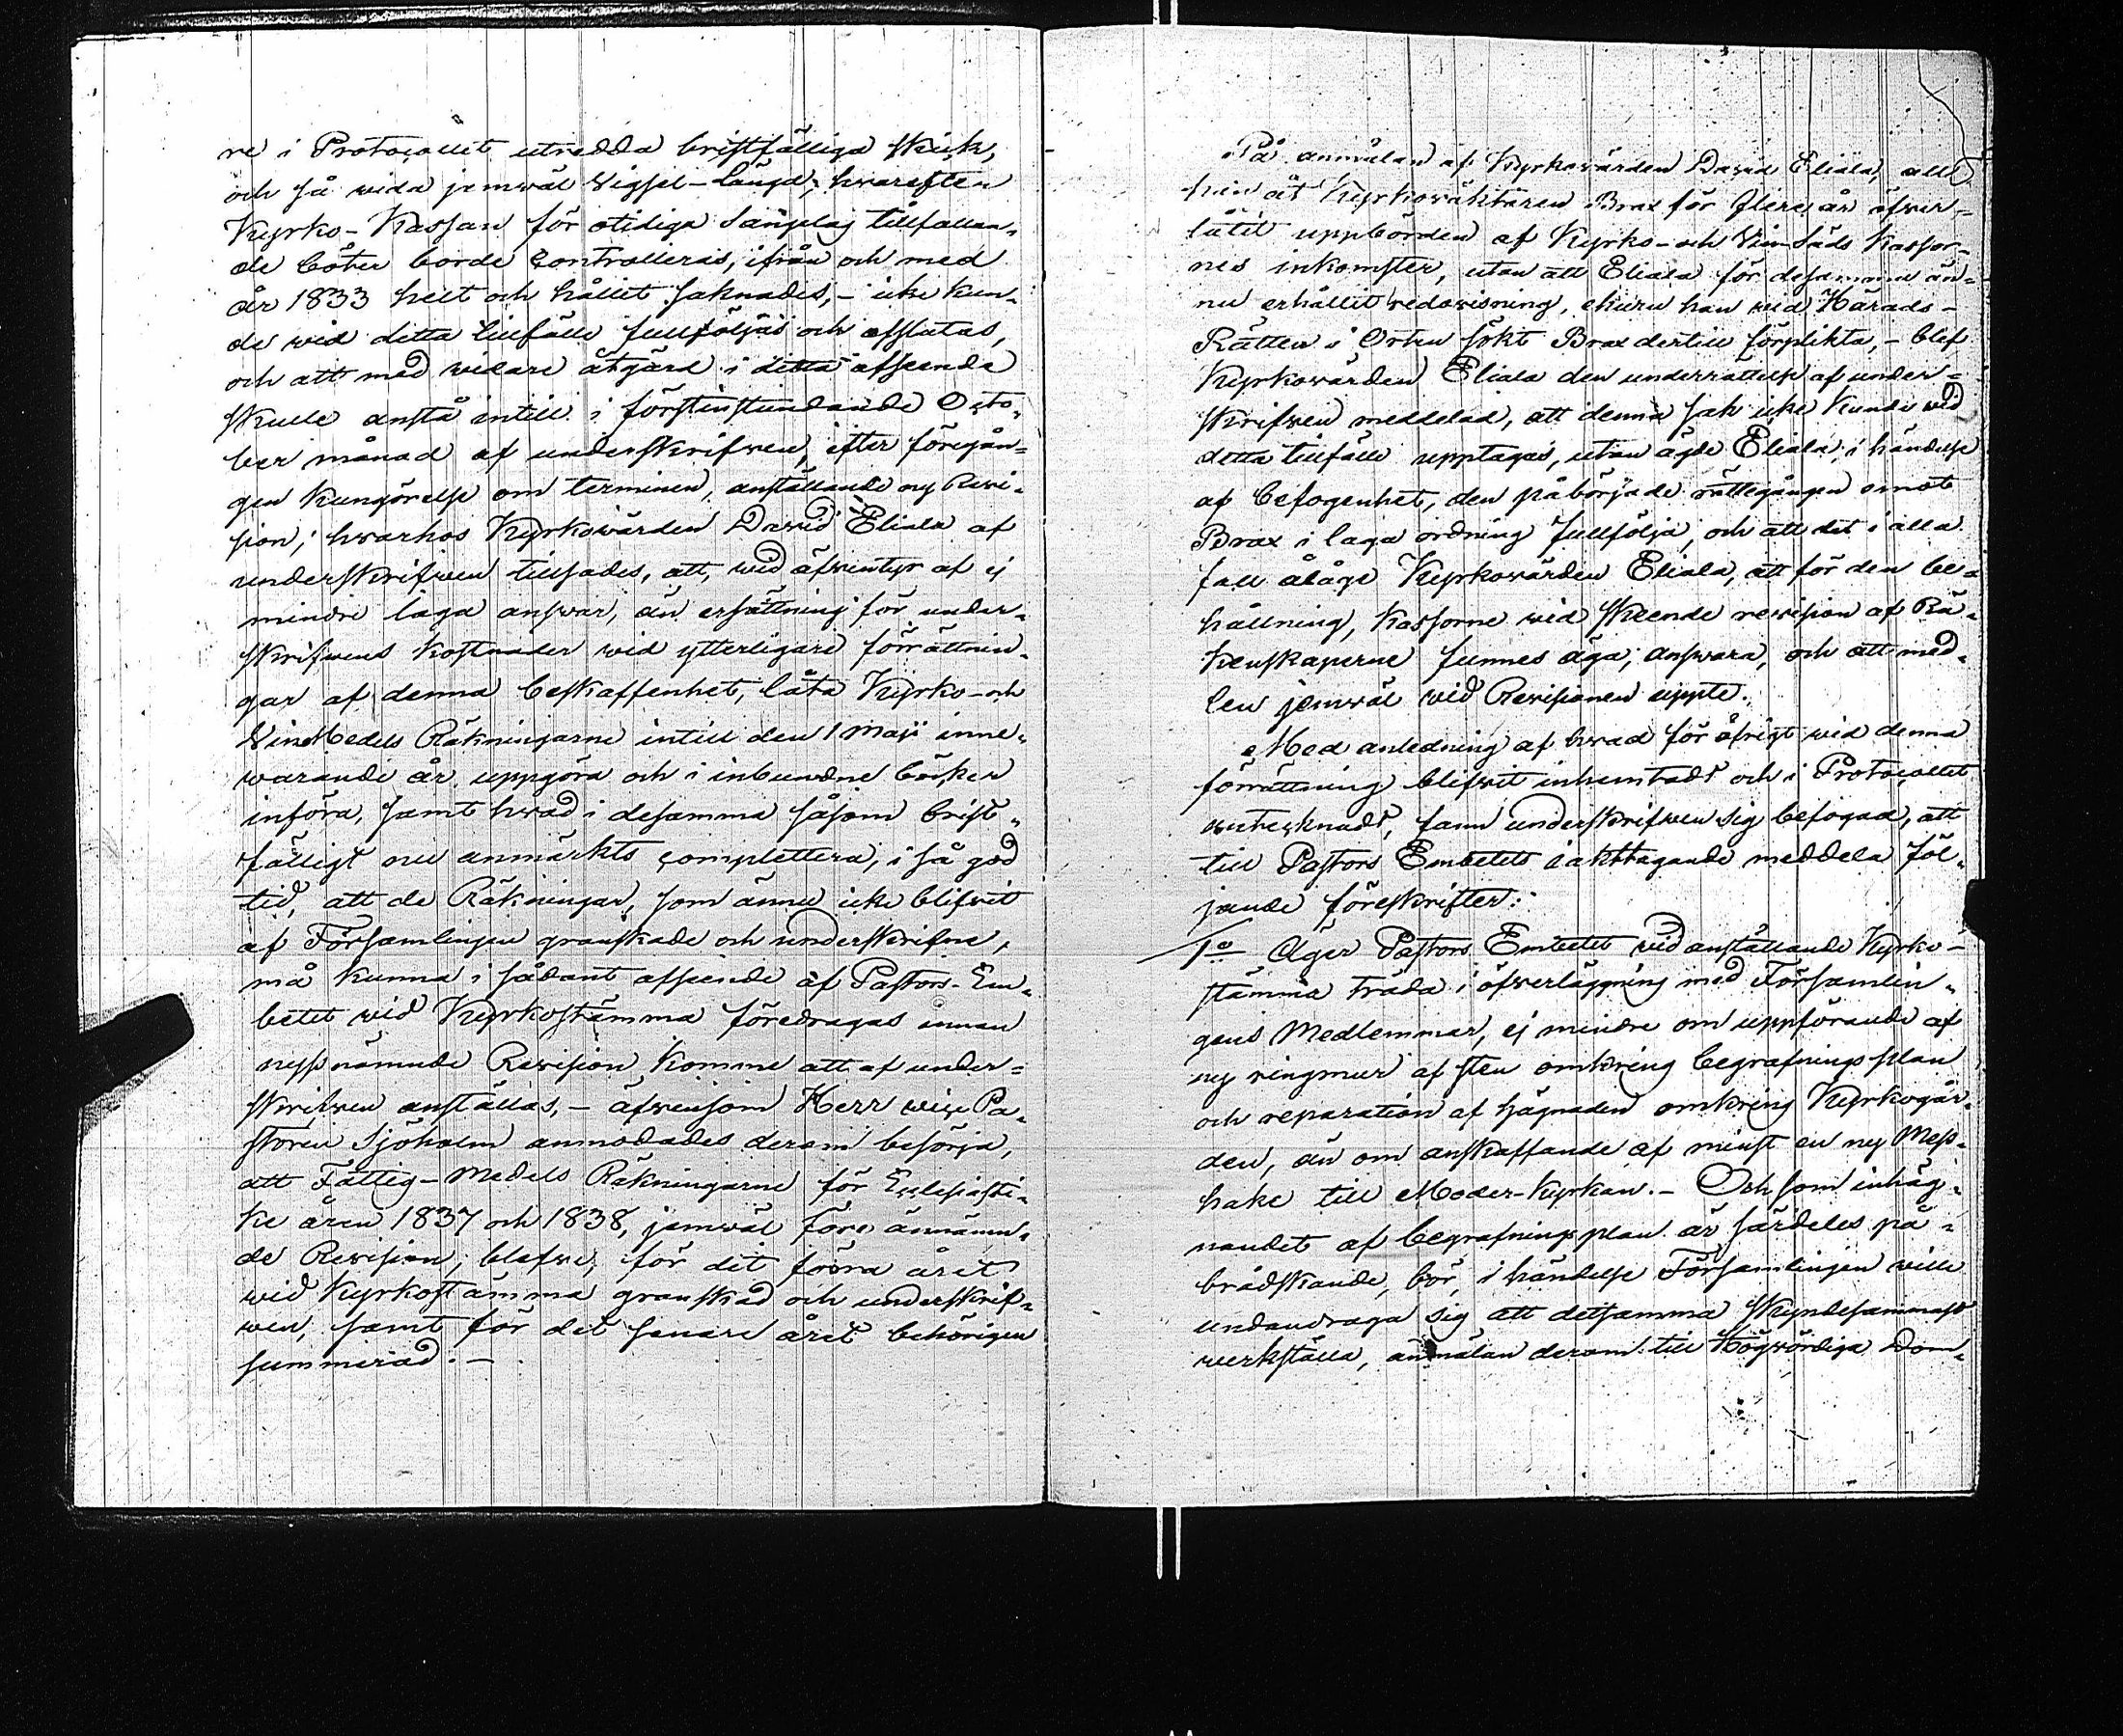 re i Protocollet utredda bristfälliga skick,
och så wida jemwäl Vigsel-Längd, hwarefter
Kyrko-Kassan för otidiga Sänglag tillfallan-
de böter borde controlleras, ifrån och med
år 1833 helt och hållet saknades, - icke kun-
de wid detta tillfälle fullföljas och afslutas,
och att med widare åtgärd i detta afseende
skulle anstå intill i förstinstundande Octo-
ber månad af underskrifwen, efter föregån-
gen kungörelse om terminen, anställande ny Revi-
sion; hwarhos Kyrkowärden David Eliala af
underskrifwen tillsades, att, wid äfwentyr af ej
mindre laga answar, än ersättning för under-
skrifwens kostnader wid ytterligare förrättnin-
gar af denna beskaffenhet, låta Kyrko- och
VinMedels Räkningarne intill den 1 Maji inne-
warande år uppgöra och i inbundne böcker
införa, samt hwad i desamma såsom brist-
fälligt nu anmärkts complettera, i så god
tid, att de Räkningar, som ännu icke blifwit
af Församlingen granskade och underskrifne,
må kunna i sådant afseende af Pastors-Em-
betet wid Kyrkostämma föredragas innan
nyssnämnde Revision komme att af under-
skrifwen anställas, - äfwensom Herr wice Pa-
storen Sjöholm anmodades derom besörja,
att Fattig-Medels Räkningarne för Ecclesiasti-
ke åren 1837 och 1838, jemwäl före ännämn-
de Revision, blefwe, för det förra året
wid Kyrkostämma granskad och underskrif-
wen, samt för det senare året behörigen
summerad. -
På anmälan af Kyrkowärden David Eliala, att
han åt Kyrkowäktaren Brax för flere år öfwer-
låtit uppbörden af Kyrko- och Vin-Säds Kassor-
nes inkomster, utan att Eliala för desamma än-
nu erhållit redowisning, ehuru han wid Härads-
Rätten i Orten sökt Brax dertill förplikta, - blef
Kyrkowärden Eliala den underrättelse af under-
skrifwen meddelad, att denna sak icke kunde wid
detta tillfälle upptagas, utan ägde Eliala, i händelse
af befogenhet, den påbörjade rättegången emot
Brax i laga ordning fullfölja, och att det i alla
fall åläge Kyrkowärden Eliala, att för den be-
hållning, Kassorne wid skeende revision af Rä-
kenskaperne funnes äga, answara, och att med-
len jemwäl wid Revisionen uppte.
Med anledning af hwad för öfrigt wid denna
förrättning blifwit inhemtadt och i Protocollet
antecknadt, fann underskrifwen sig befogad, att
till Pastors Embetets iakttagande meddela föl-
jande föreskrifter:
1o Äger Pastors Embetet wid anställande Kyrko-
stämma träda i öfwerläggning med Församlin-
gens Medlemmar, ej mindre om uppförande af
ny ringmur af sten omkring begrafningsplan
och reparation af hägnaden omkring Kyrkogår-
den, än om anskaffande af minst en ny Mess-
hake till Moder-Kyrkan. - Och som inhäg-
nandet af begrafningsplan är särdeles på-
brådskande, bör, i händelse Församlingen wille
undandraga sig att detsamma skyndesammast
werkställa, anmälan derom till Högwördiga Dom-